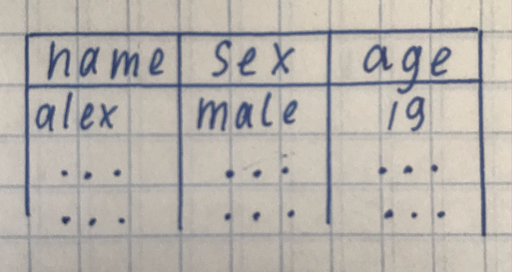 name sex age
alex male 19
... ... ...
... ... ...